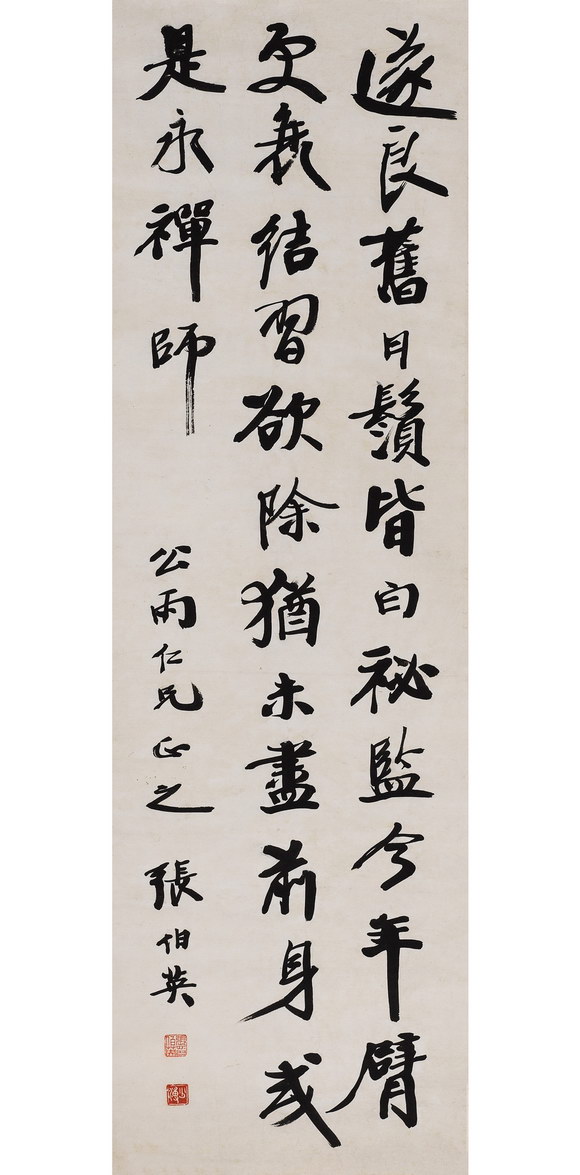 遂良舊日鬚皆白祕監今年臂
更衰結習欲除猶未盡前身或
是永禪師
公雨仁兄正之 張伯英